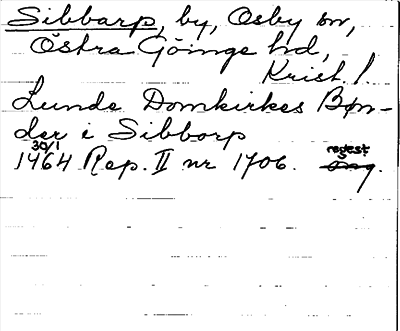 Sibbarp, by, Osby sn,
Östra Göinge hd,
Krist. l.
Lunde Domkirkes Bøn-
der i Sibborp
30/1
1464 Rep. II nr 1706. regest